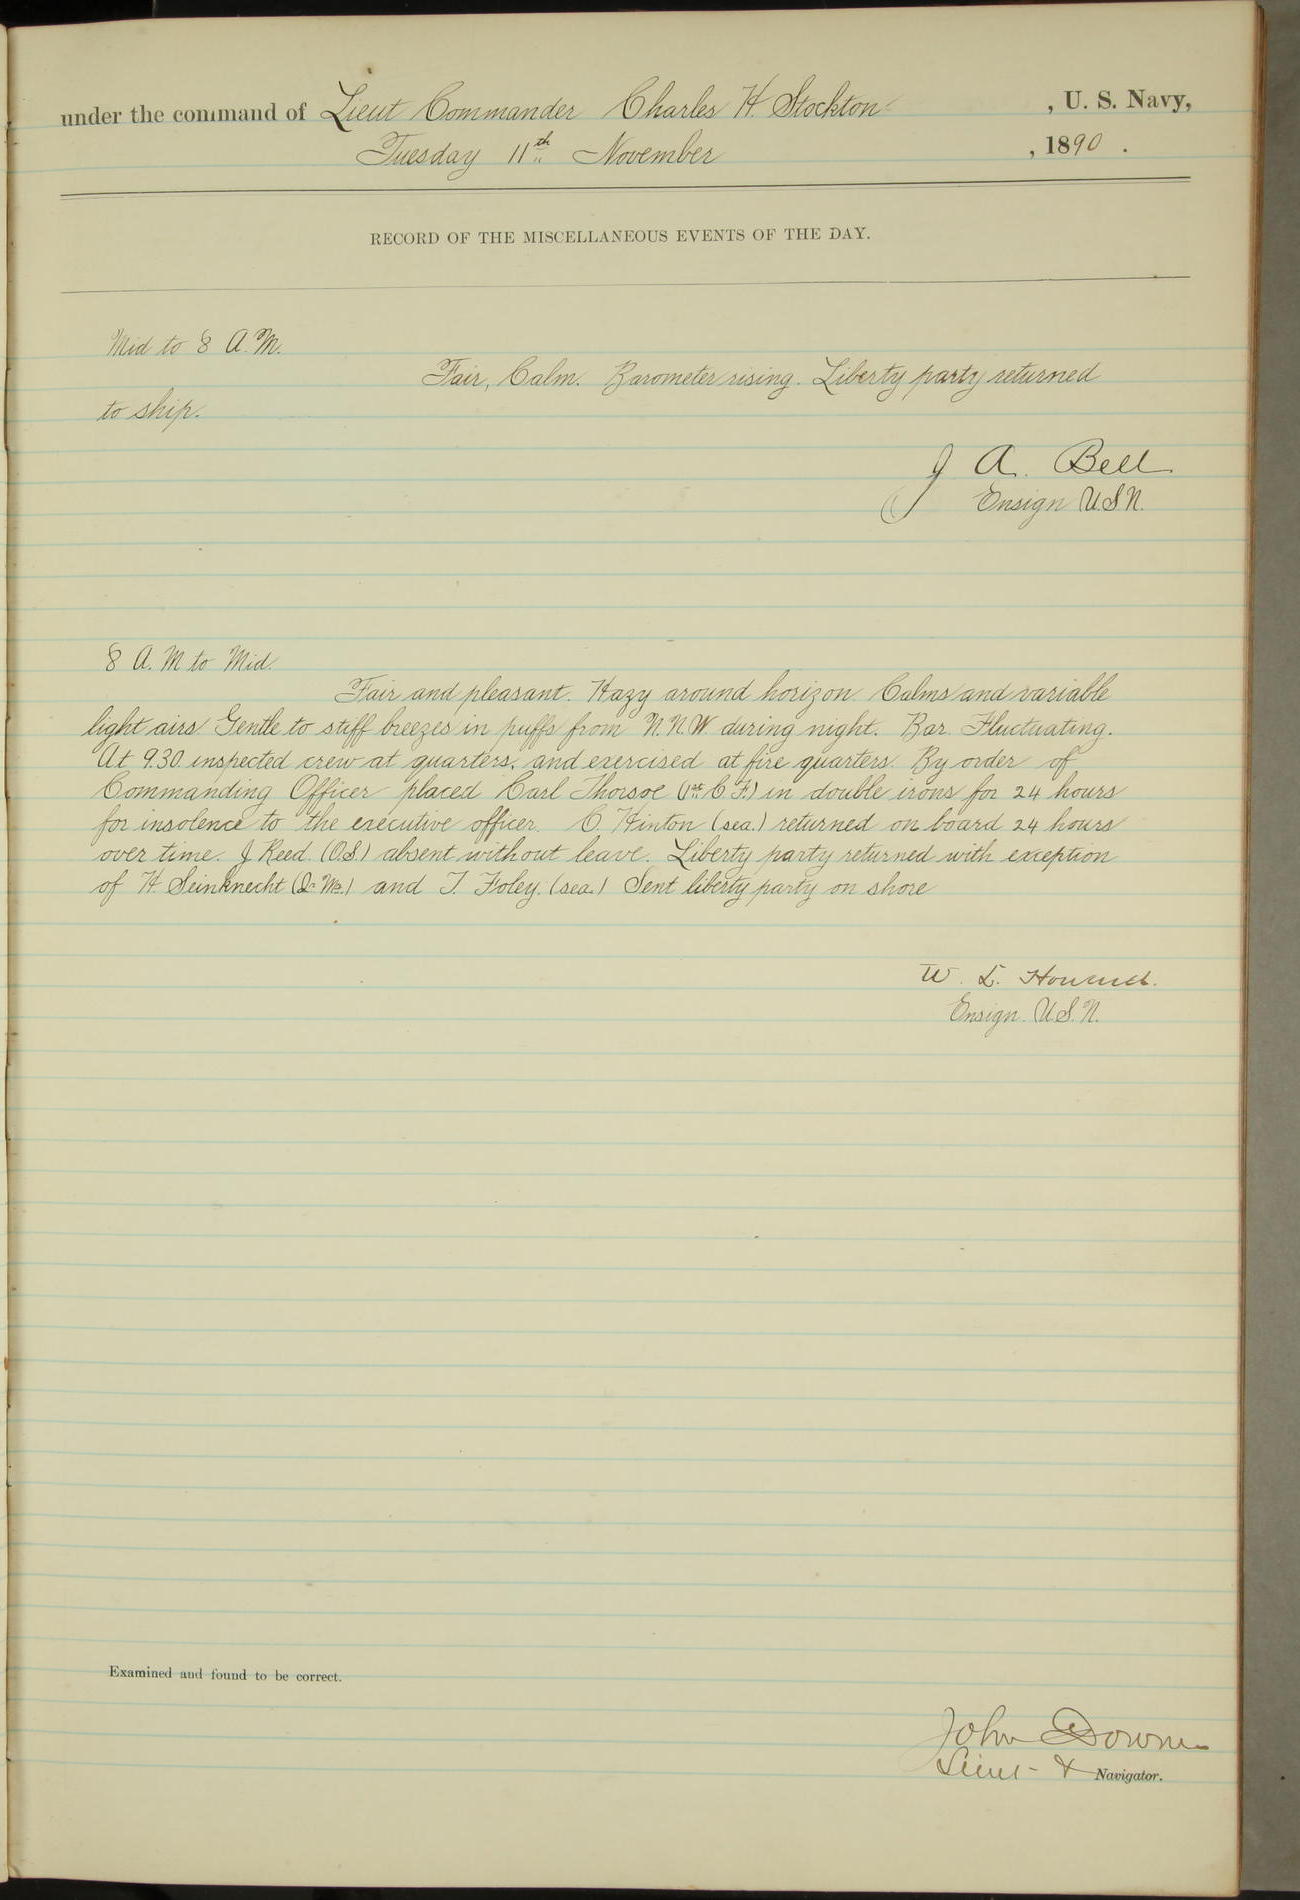 under the command of Lieut Commander Charles H. Stockton , U. S. Navy,
Tuesday 11th November , 1890 .
RECORD OF THE MISCELLANEOUS EVENTS OF THE DAY.
Mid to 8 A.M.
Fair, Calm. Barometer rising. Liberty party returned
to ship.
J A. Bell
Ensign U.S.N.
8 A.M to Mid.
Fair and pleasant. Hazy around horizon. Calms and variable
light airs. Gentle to stiff breezes in puffs from N.N.W. during night. Bar. Fluctuating.
At 9.30 inspected crew at quarters, and exercised at fire quarters. By order of
Commanding Officer placed Carl (1st C.F.) in double irons for 24 hours
for insolence to the executive officer. C. Hinton (sea.) returned on board 24 hours
over time. J Reed. (O.S.) absent without leave. Liberty party returned with exception
of H Seinknecht and T. Foley. (sea.) Sent liberty party on shore
W. L. Howard.
Ensign. U.S.N.
Examined and found to be correct.
John Downes
Lieut - & Navigator.